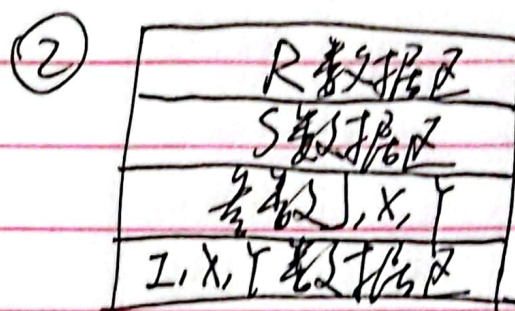 ②
R数据区
S数据区
参数J,X,Y
I,X,Y数据区